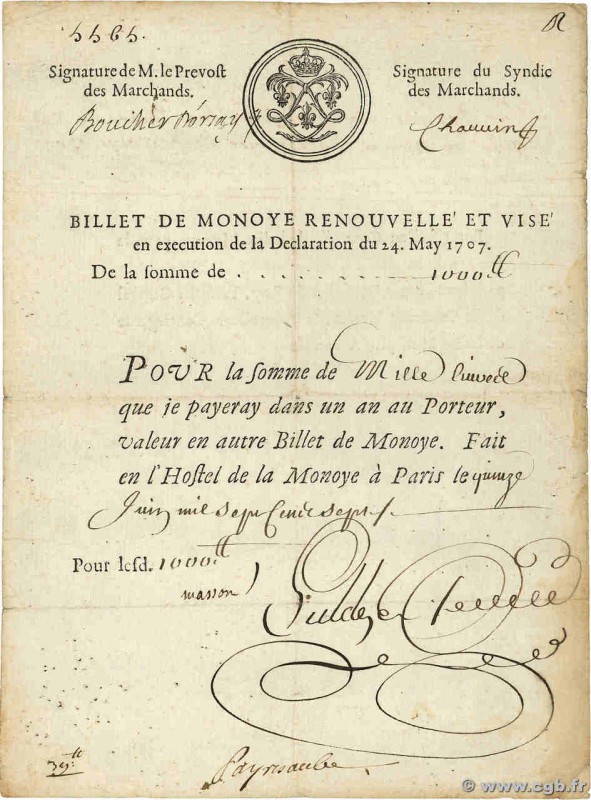 Signature de M. le Prevost
des Marchands.
Signature du Syndic
des Marchands.
Boucher Dorsay
Chauvin
BILLET DE MONOYE RENOUVELLE' ET VISE'
en execution de la Declaration du 24. May 1707.
De la somme de . . . . . . . . 1000ᵗᵗ
POVR la somme de Mille livres
que je payeray dans un an au Porteur,
valeur en autre Billet de Monoye. Fait
en l'Hostel de la Monoye à Paris le quinze
Juin mil sept Cent sept
Pour lesd. 1000ᵗᵗ
masson
© www.cgb.fr